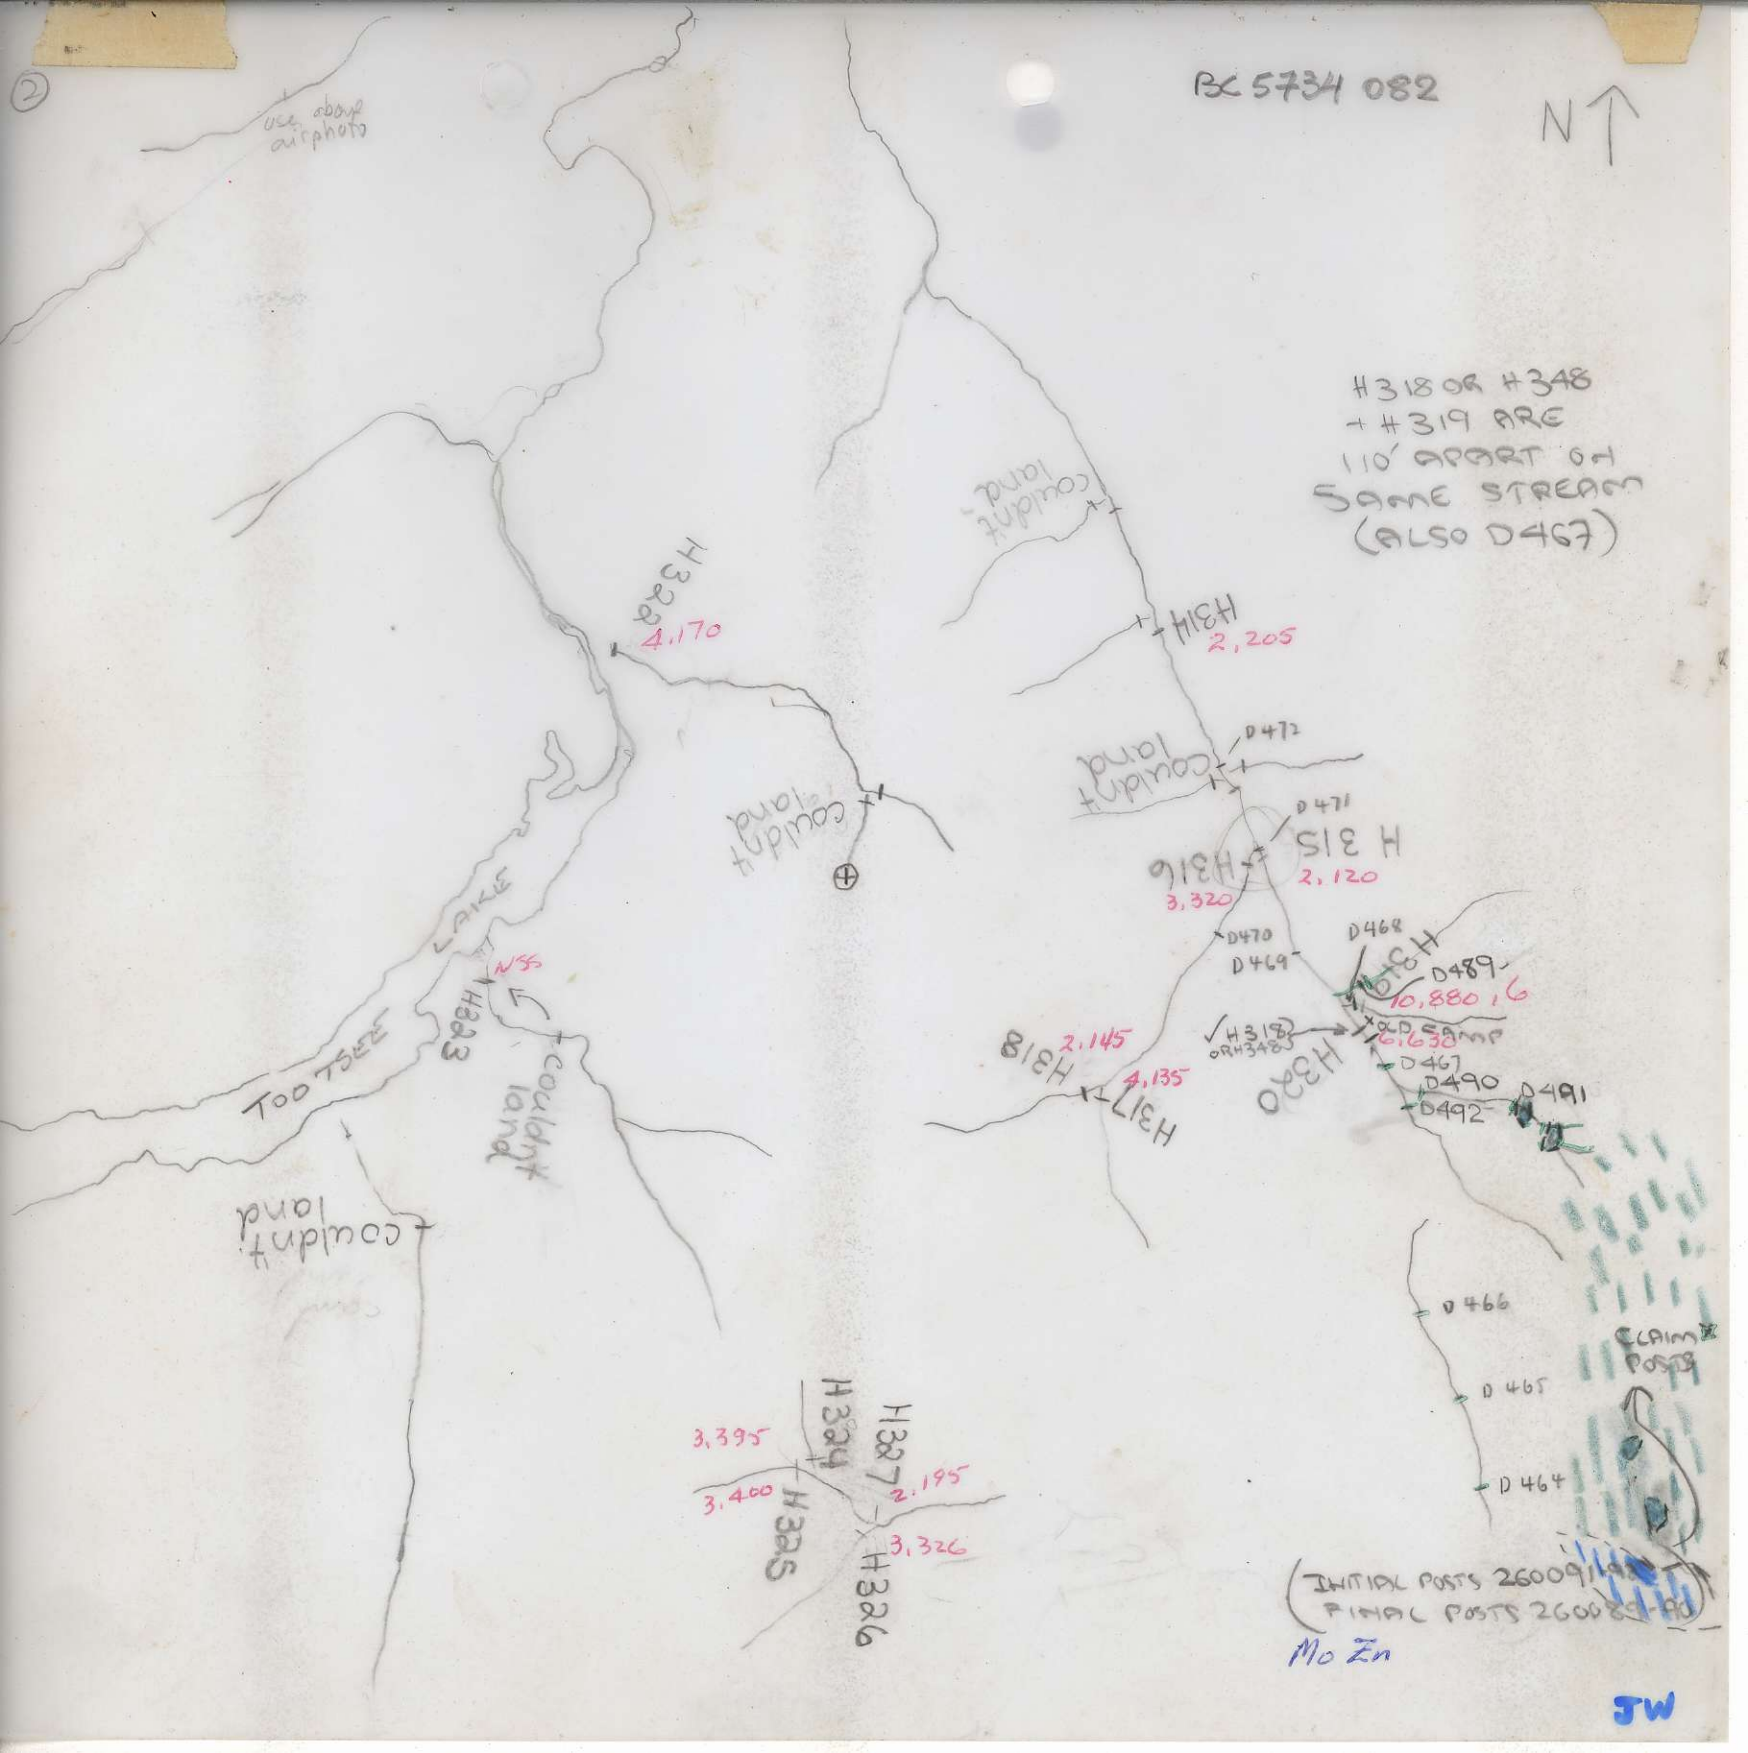 2
use above
airphoto
BC 5734 082
N
H318 OR H348
+ H319 ARE
110' APART ON
SAME STREAM
(ALSO D467)
couldn't
land
H322
4,170
H314
2,205
D472
couldn't
land
couldn't
land
D471
H315
2,120
H316
3,320
D470
D469
D468
H319
D489
10,880, 6
H318?
OR H348?
OLD SAMP
6,630
H320
D467
D490
D492
D491
2,145
H318
4,135
H317
LAKE
TOOTSEE
NSS
H323
couldn't
land
couldn't
land
D466
CLAIM
POSTS
D465
D464
3,395
H324
H327
2,195
3,400
H325
3,326
H326
(INITIAL POSTS 260091
FINAL POSTS
Mo Zn
JW